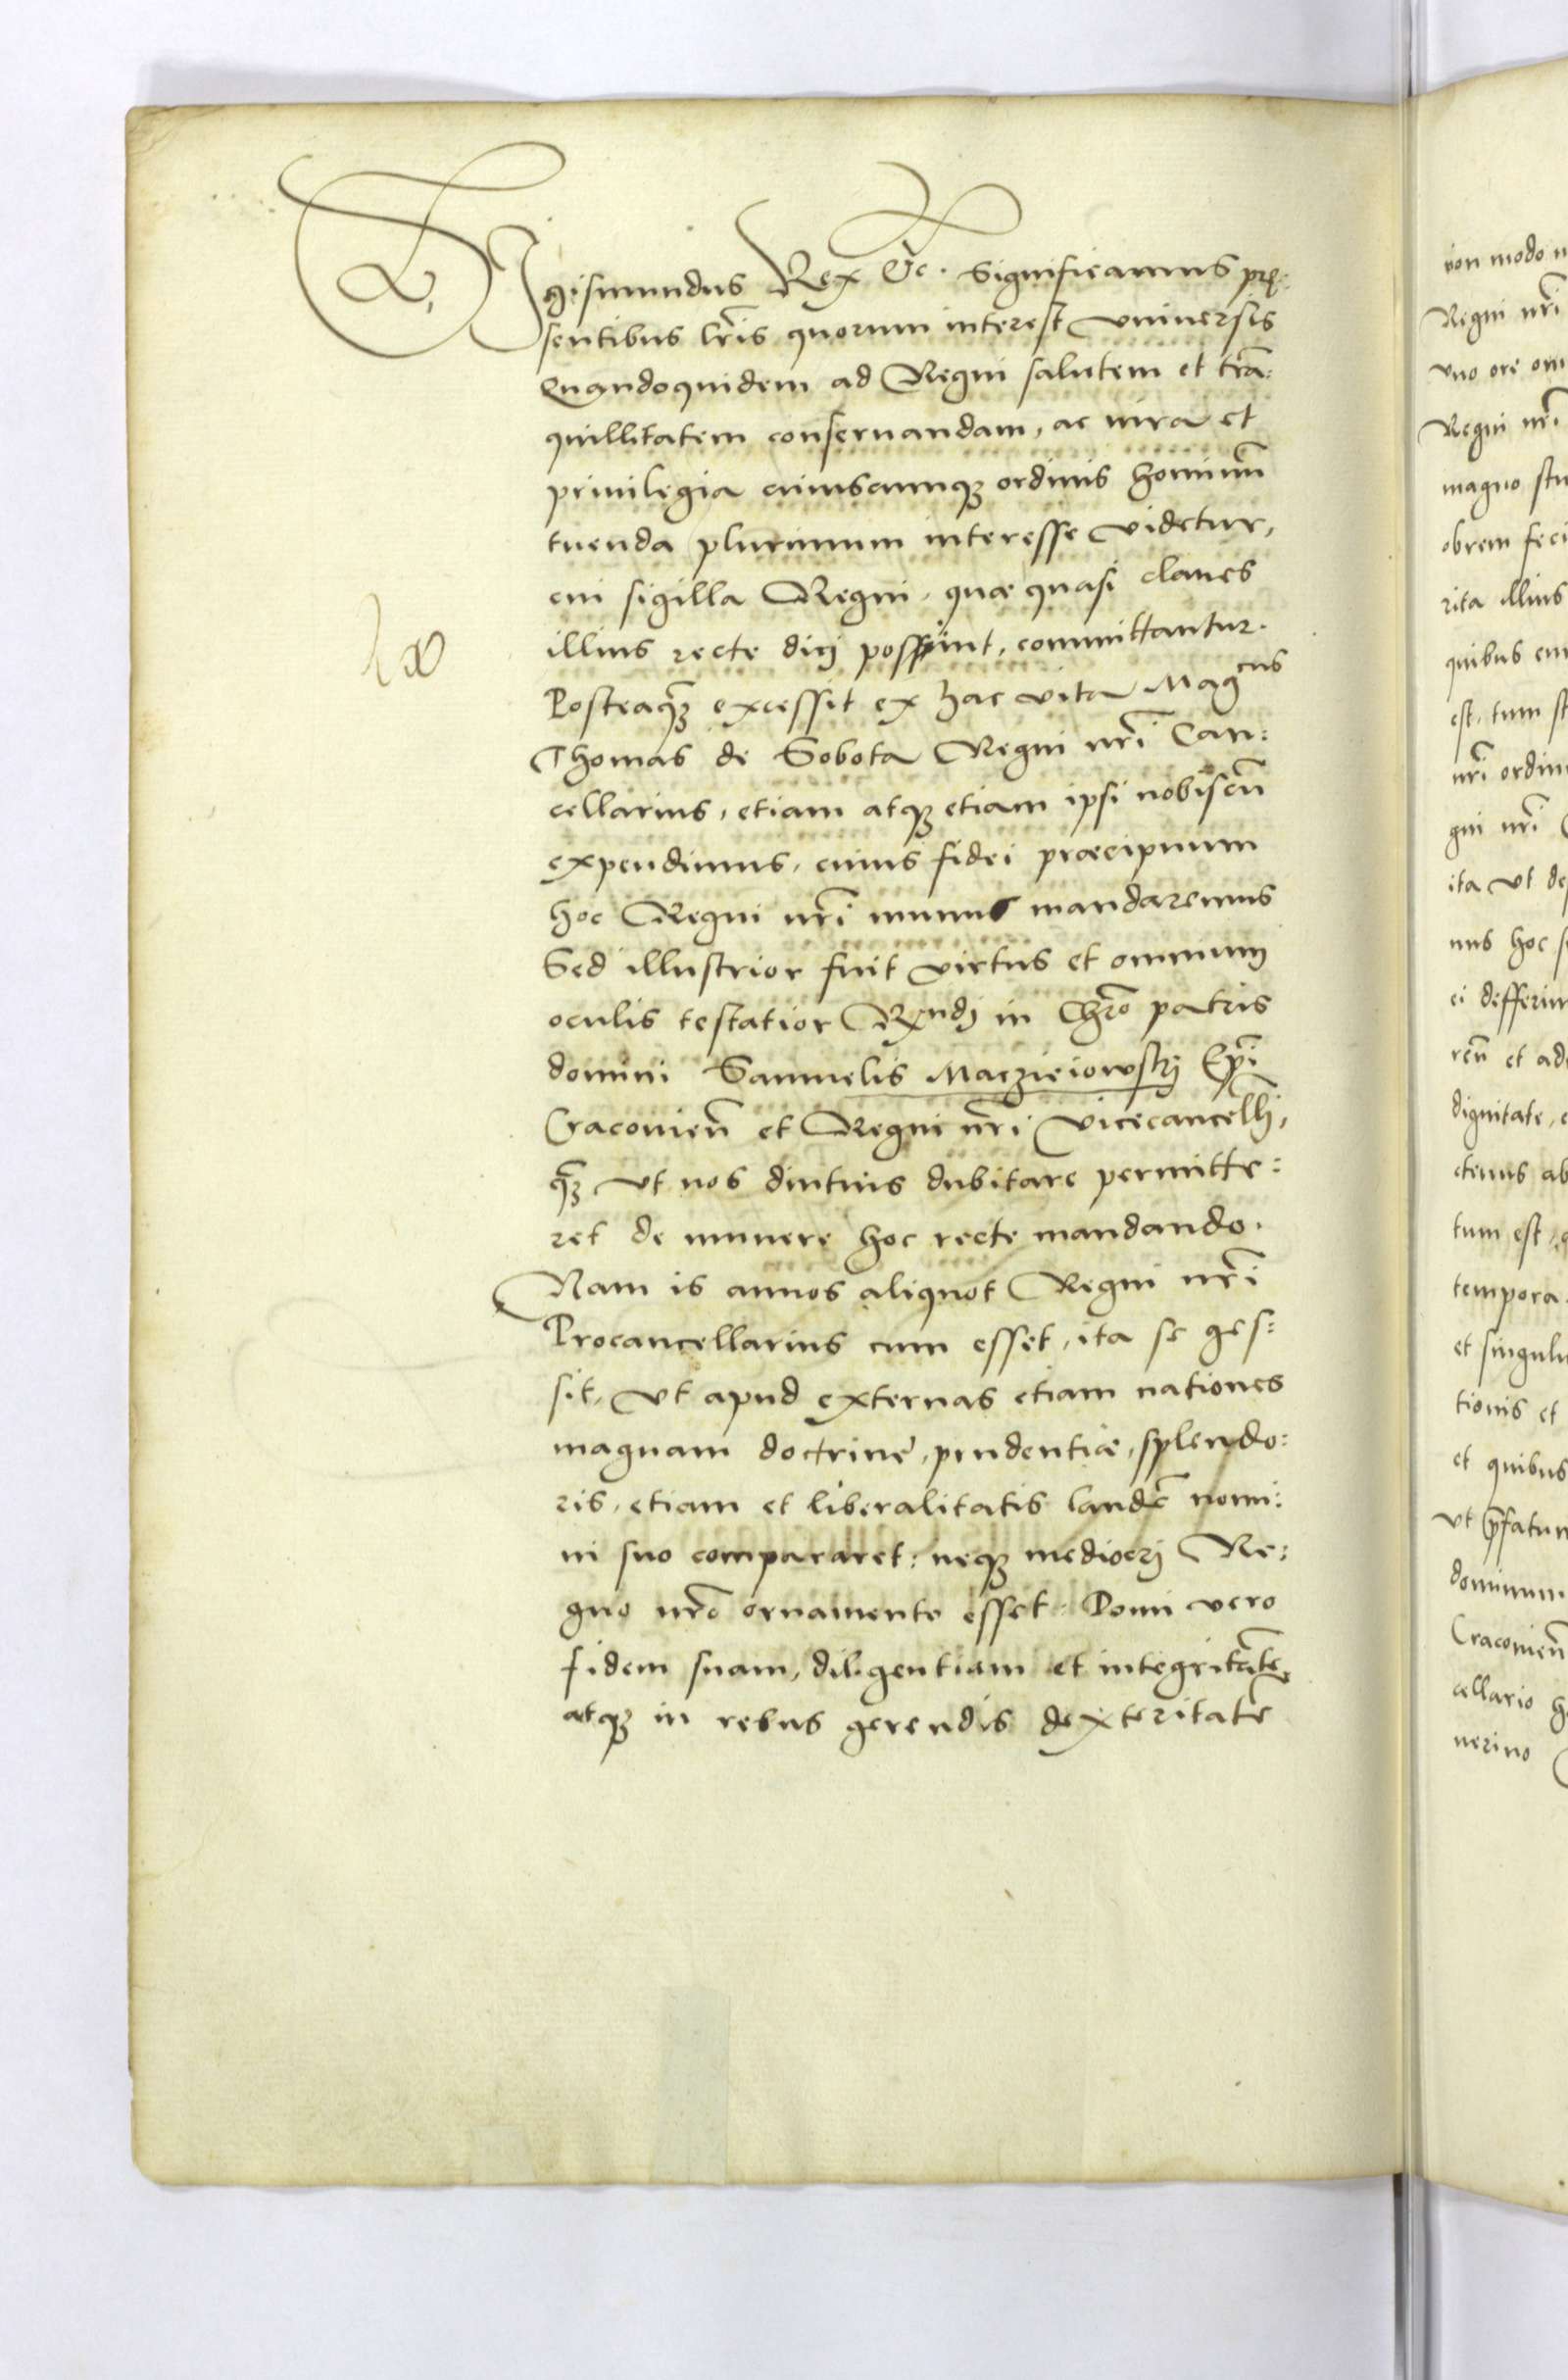 SIgismundus Rex &c. Significamus prę:
sentibus lr̃is quorum interest vniuersis
Quandoquidem ad Regni salutem et trã:
quillitatem conseruandam, ac iura et
priuilegia cuiuscumqȝ ordinis hominũ
tuenda plurimum interesse videtur,
cui sigilla Regni, quæ quasi claues
illius recte dici possint, committantur.
Posteaqȝ̃ excessit ex hac vita Magcus
Thomas de Sobota Regni nr̃i Can:
cellarius, etiam atqȝ etiam ipsi nobiscũ
expendimus, cuius fidei præcipuum
hoc Regni nr̃i munus mandaremus
Sed illustrior fuit virtus et omnium
oculis testatior Rndj in Chr̃o patris
domini Samuelis Maczieiowskj Ep̃i
Cracovieñ et Regni nr̃i Vicecancellr̃j,
qȝ̃ vt nos diutius dubitare permitte:
ret de munere hoc recte mandando.
Nam is annos aliquot Regni nr̃i
Procancellarius cum esset, ita se ges:
sit, vt apud externas etiam nationes
magnam doctrinę, prudentiæ, splendo:
ris, etiam et liberalitatis laudẽ nomi:
ni suo compararet: neqȝ mediocrj Re:
gno nr̃o ornamento esset: Domi vero
fidem suam, diligentiam et integritatẽ
atqȝ in rebus gerendis dexteritatẽ
non modo n
Regni nr̃i
vno ore om
Regni nr̃i
magno stu
obrem feci
rita illius
quibus cu
est, tum st
nr̃i ordin
gni nr̃i
ita vt de
nus hoc s
ei defferim
reñ et ad
dignitate,
ctenus ab
tum est,
tempora
et singuli
tionis et
et quibus
vt p̃fatum
dominum
Cracovieñ
cellario h
uerimo